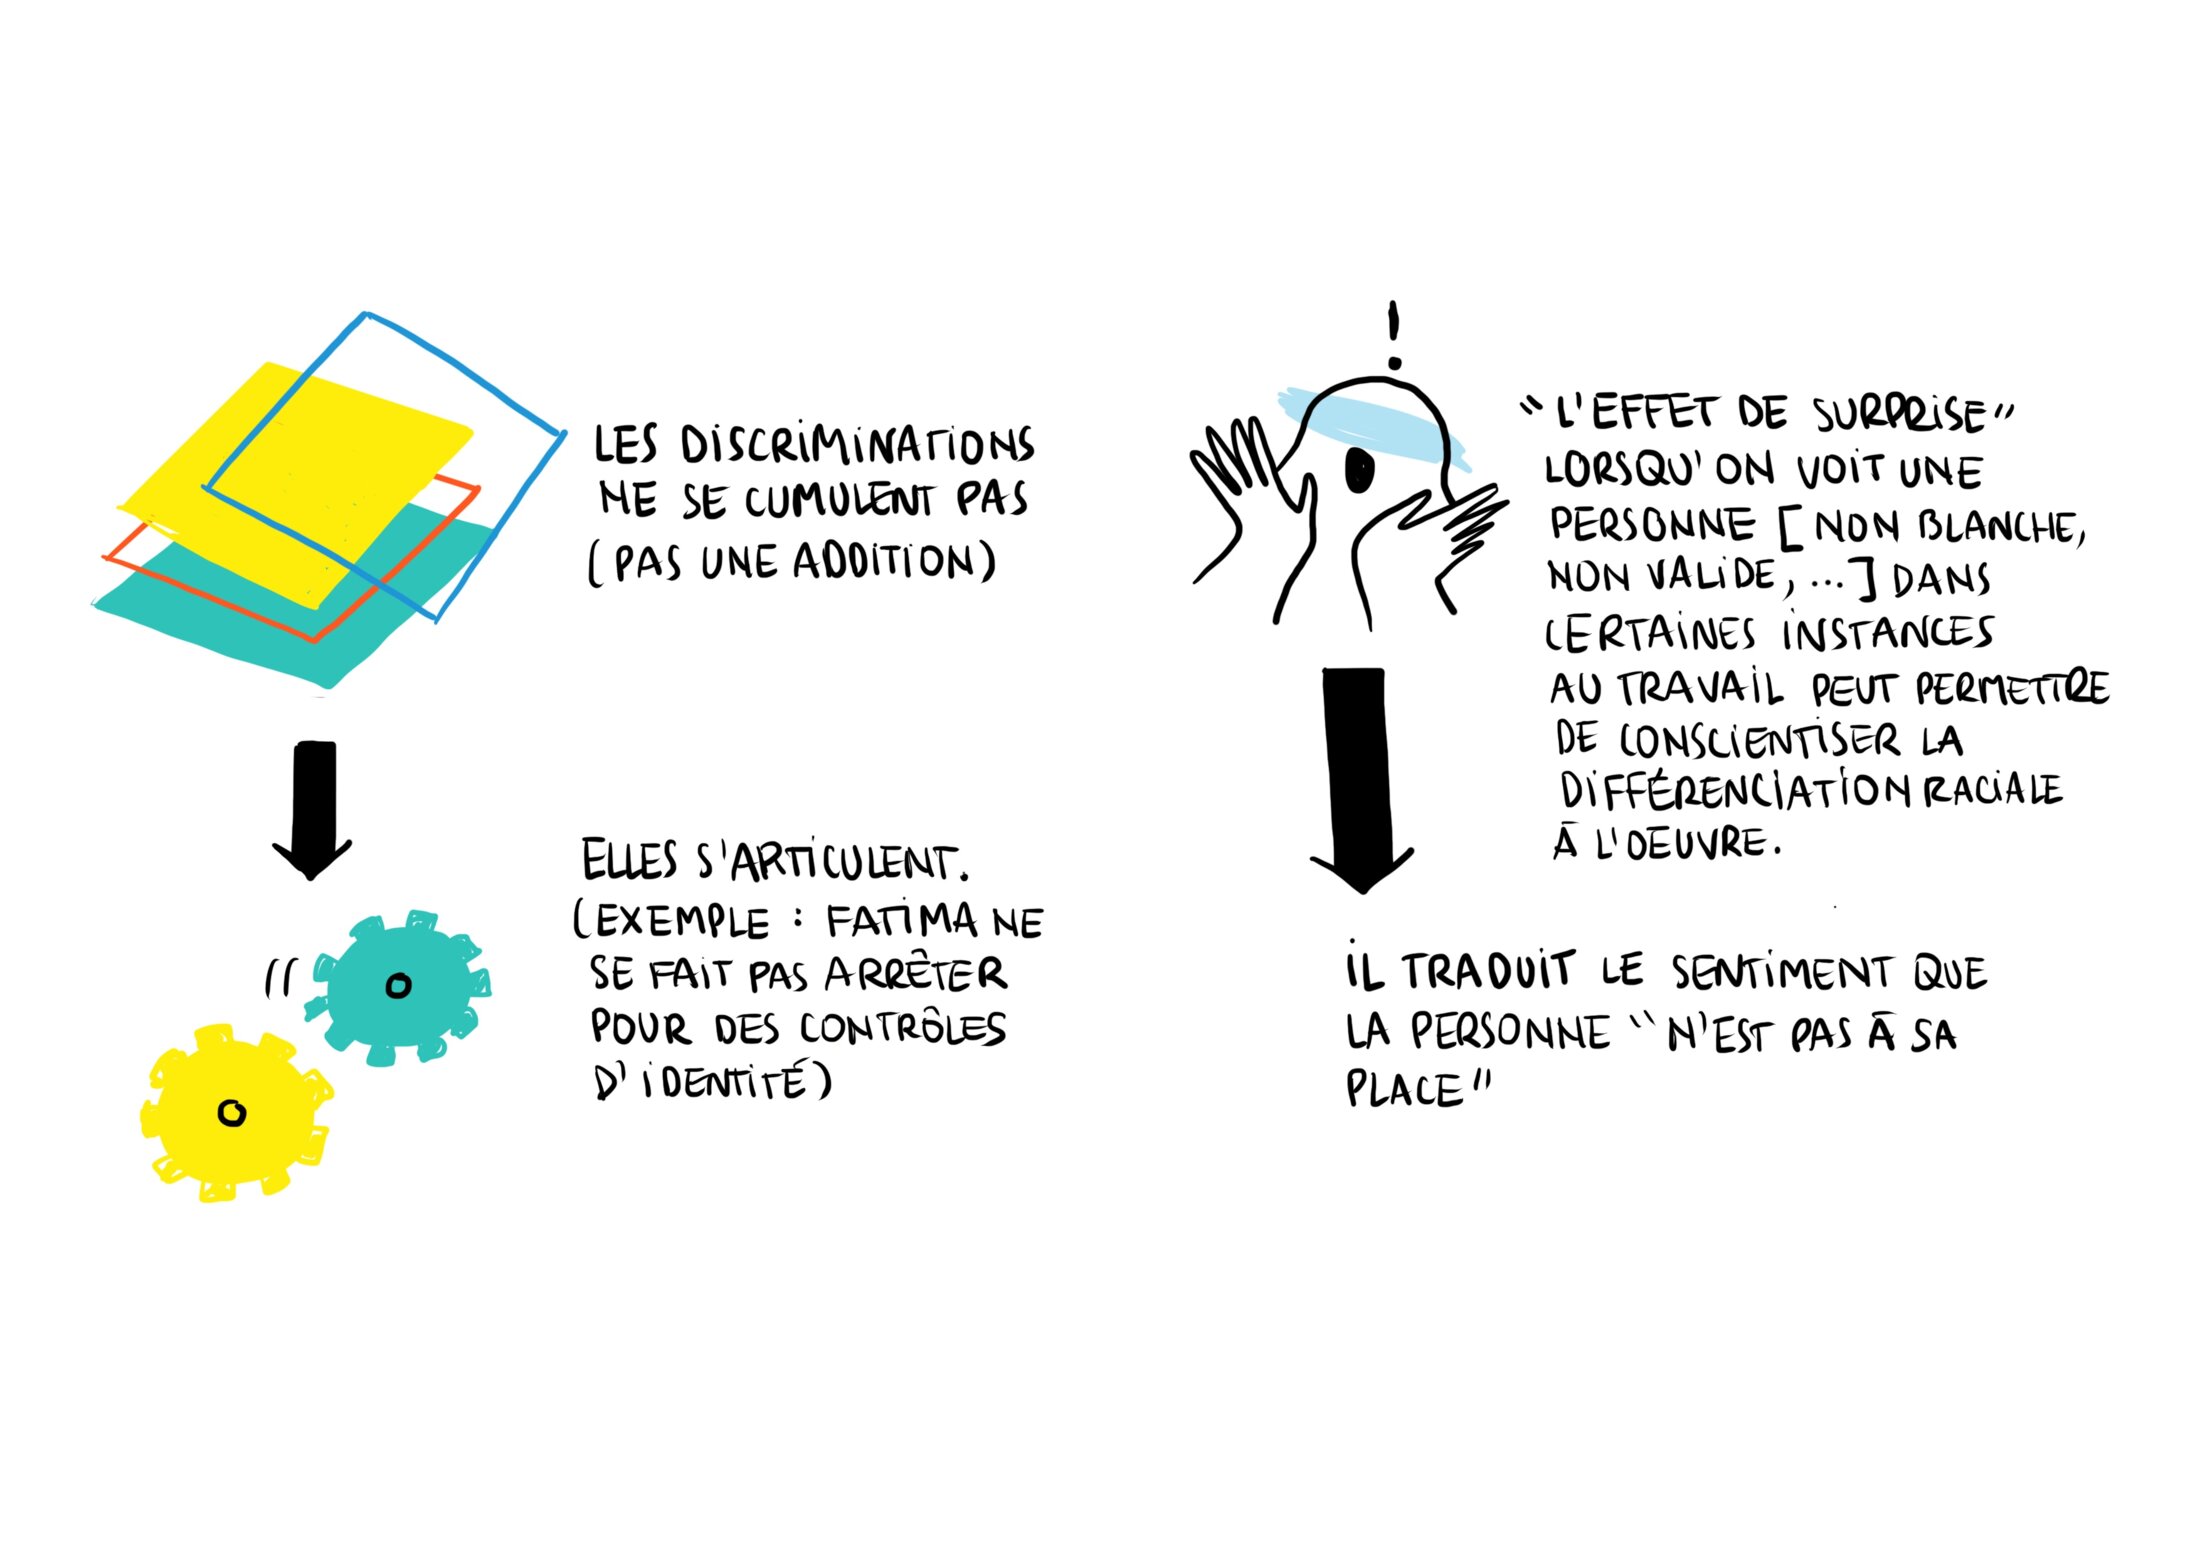 LES DISCRIMINATIONS
NE SE CUMULENT PAS
(PAS UNE ADDITION)
ELLES S'ARTICULENT.
(EXEMPLE : FATIMA NE
SE FAIT PAS ARRÊTER
POUR DES CONTRÔLES
D'IDENTITÉ)
!
"L'EFFET DE SURPRISE"
LORSQU'ON VOIT UNE
PERSONNE [NON BLANCHE,
NON VALIDE, ...] DANS
CERTAINES INSTANCES
AU TRAVAIL PEUT PERMETTRE
DE CONSCIENTISER LA
DIFFÉRENCIATION RACIALE
À L'OEUVRE.
IL TRADUIT LE SENTIMENT QUE
LA PERSONNE "N'EST PAS À SA
PLACE"